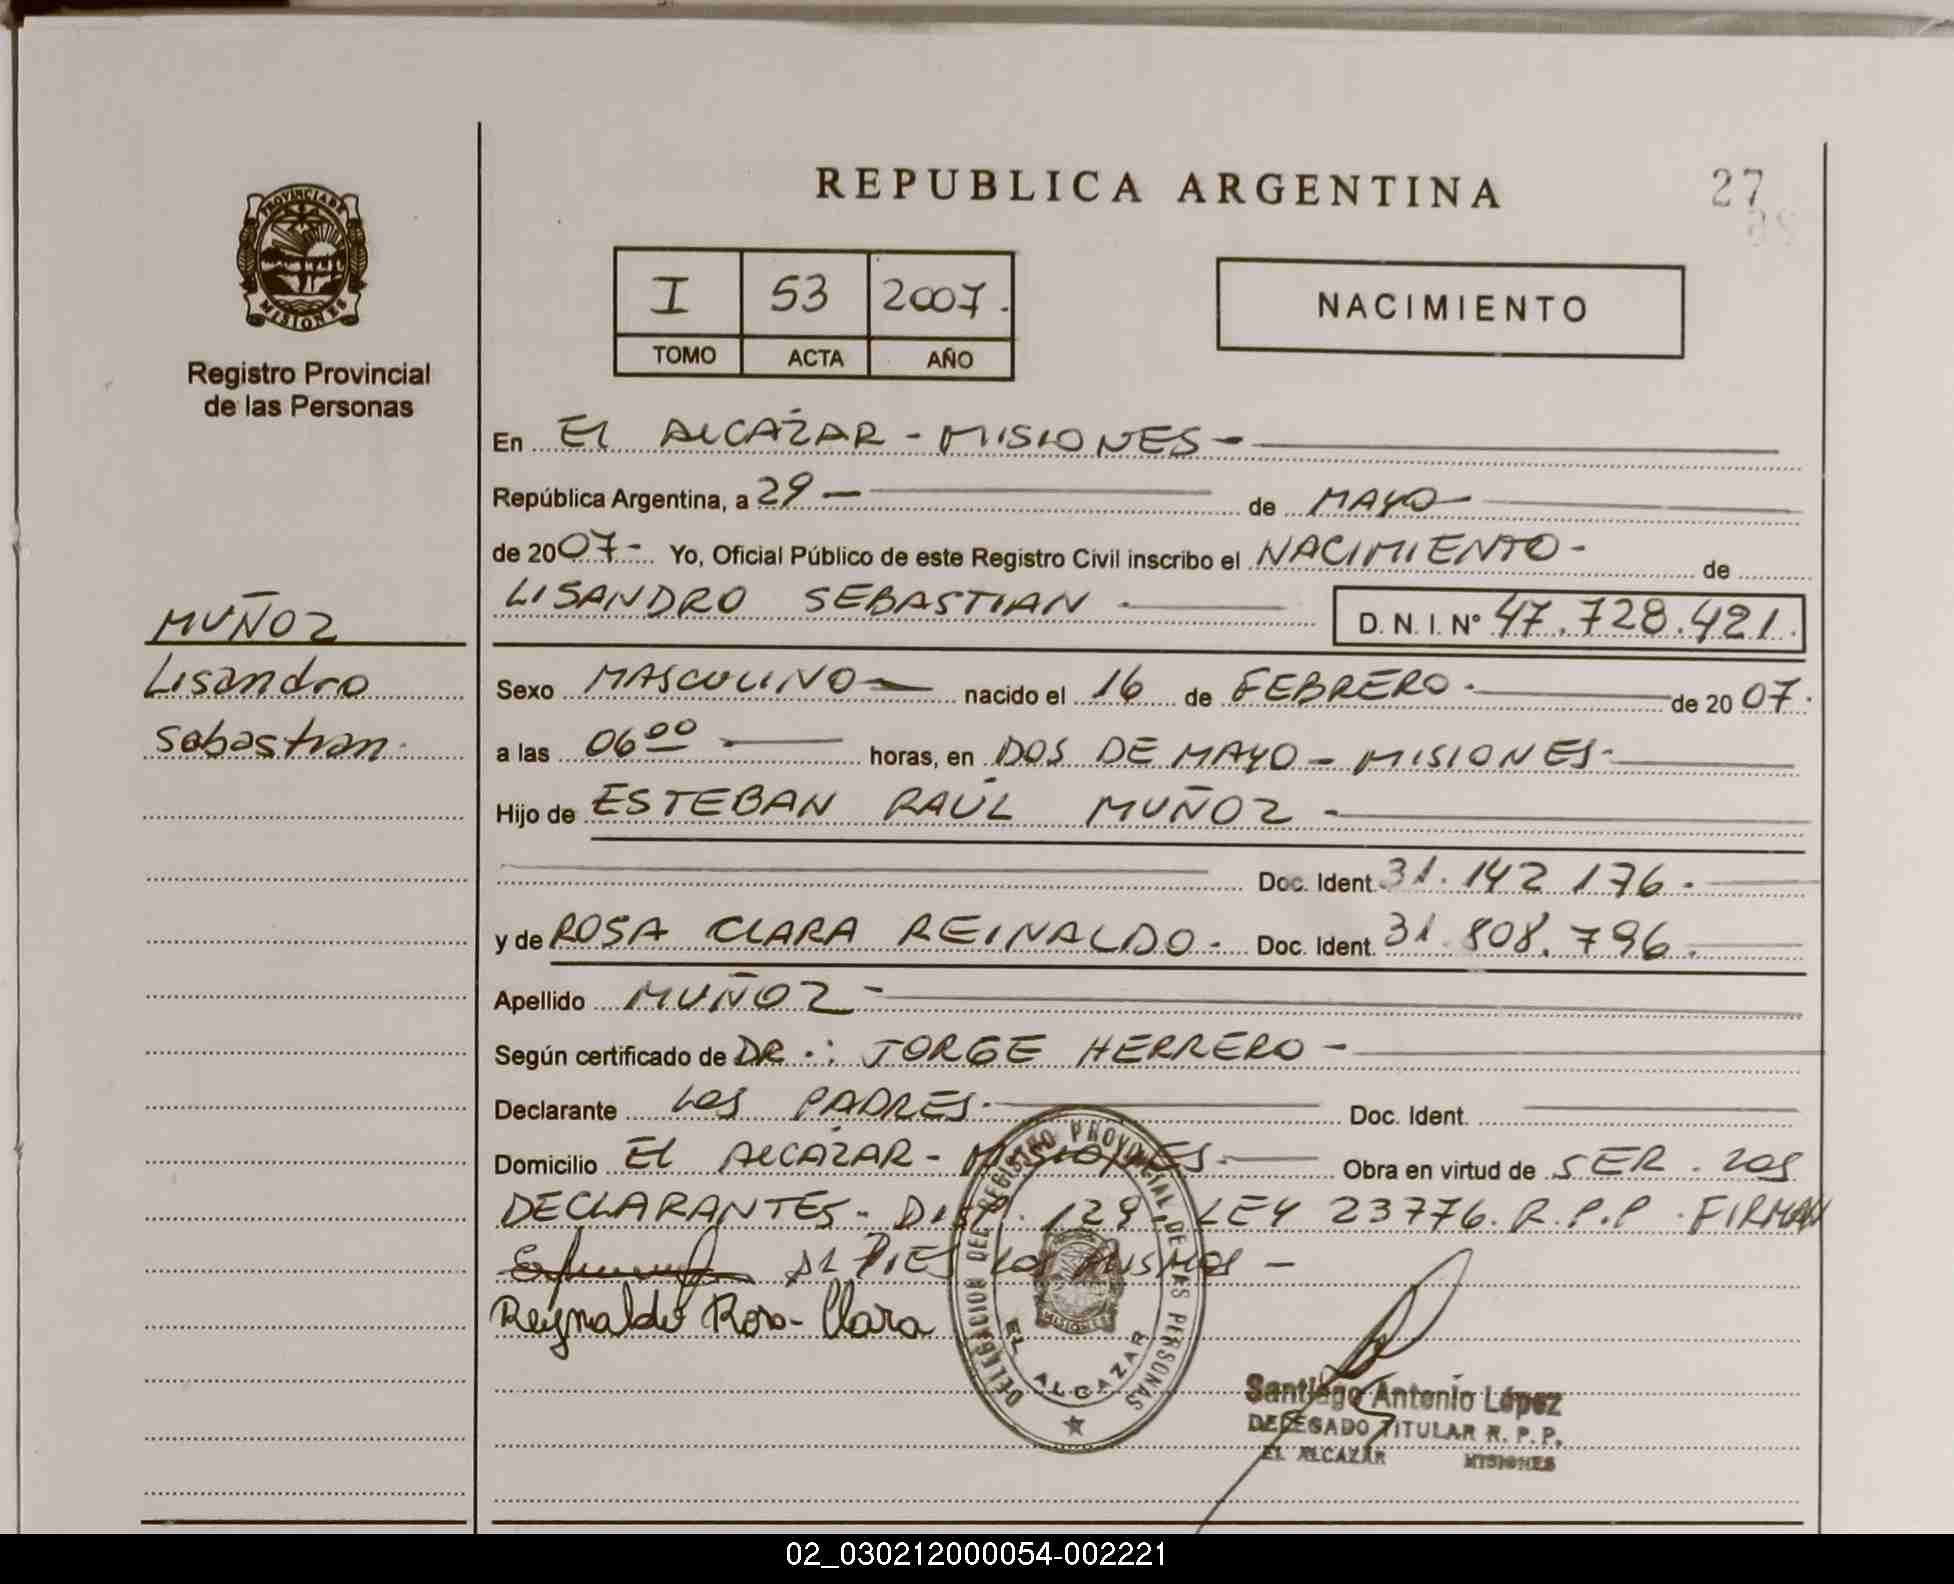 REPUBLICA ARGENTINA
27
PROVINCIA DE
MISIONES
Registro Provincial
de las Personas
I 53 2007.
TOMO ACTA AÑO
NACIMIENTO
En El ALCAZAR - MISIONES -
República Argentina, a 29 - de MAYO -
de 2007 - Yo, Oficial Público de este Registro Civil inscribo el NACIMIENTO - de
LISANDRO SEBASTIAN - D. N. I. N° 47.728.421.
MUÑOZ
Lisandro
Sebastian.
Sexo MASCULINO - nacido el 16 de FEBRERO - de 2007.
a las 06 00 - horas, en DOS DE MAYO - MISIONES -
Hijo de ESTEBAN RAÚL MUÑOZ -
Doc. Ident. 31.142 176.-
y de ROSA CLARA REINALDO - Doc. Ident. 31.808.796.
Apellido MUÑOZ -
Según certificado de DR.: JORGE HERRERO -
Declarante LOS PADRES - Doc. Ident.
Domicilio El ALCAZAR - MISIONES - Obra en virtud de SER LOS
DECLARANTES - DISP. 129. LEY 23776. R.P.P. FIRMAN
AL PIE LOS MISMOS -
Reynaldo Rosa Clara
DELEGACION DEL REGISTRO PROVINCIAL DE LAS PERSONAS
MISIONES
EL ALCAZAR
Santiago Antonio López
DELEGADO TITULAR R. P. P.
EL ALCAZAR MISIONES
02_030212000054-002221